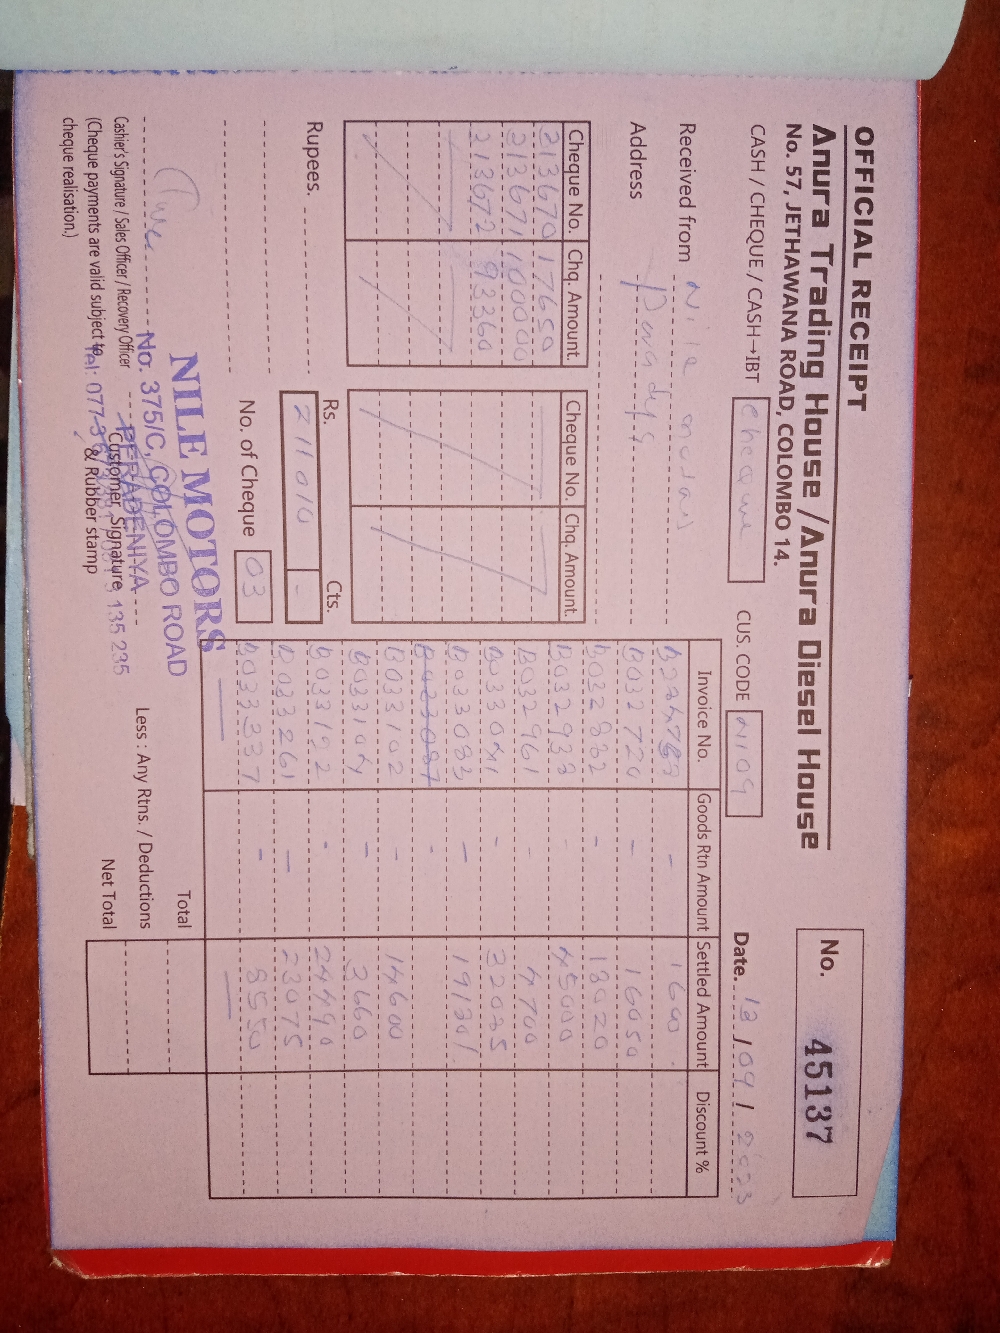 OFFICIAL RECEIPT
Anura Trading House / Anura Diesel House
No. 57, JETHAWANA ROAD, COLOMBO 14.
No. 45137
CASH / CHEQUE / CASH→IBT cheque CUS. CODE N109 Date. 13 / 09 / 2023
Received from Nile motors
Address
Cheque No. Chq. Amount. Cheque No. Chq. Amount.
213670 17650
213671 100000
213672 93360
Invoice No. Goods Rtn Amount Settled Amount Discount %
1600
B032720 - 16050
B032882 - 18020
B032933 - 45000
B032961 - 4700
B033041 - 32085
B033083 - 19130/.
B033087 -
B033102 - 14600
B033104 - 3660
B033192 - 24490
B033261 - 23075
B033337 - 8550
Rupees.
Rs. Cts.
211010 -
No. of Cheque 03
Total
Less : Any Rtns. / Deductions
Net Total
Cashier's Signature / Sales Officer / Recovery Officer
(Cheque payments are valid subject to
cheque realisation.)
Customer Signature
& Rubber stamp
NILE MOTORS
No. 375/C, COLOMBO ROAD
PERADENIYA